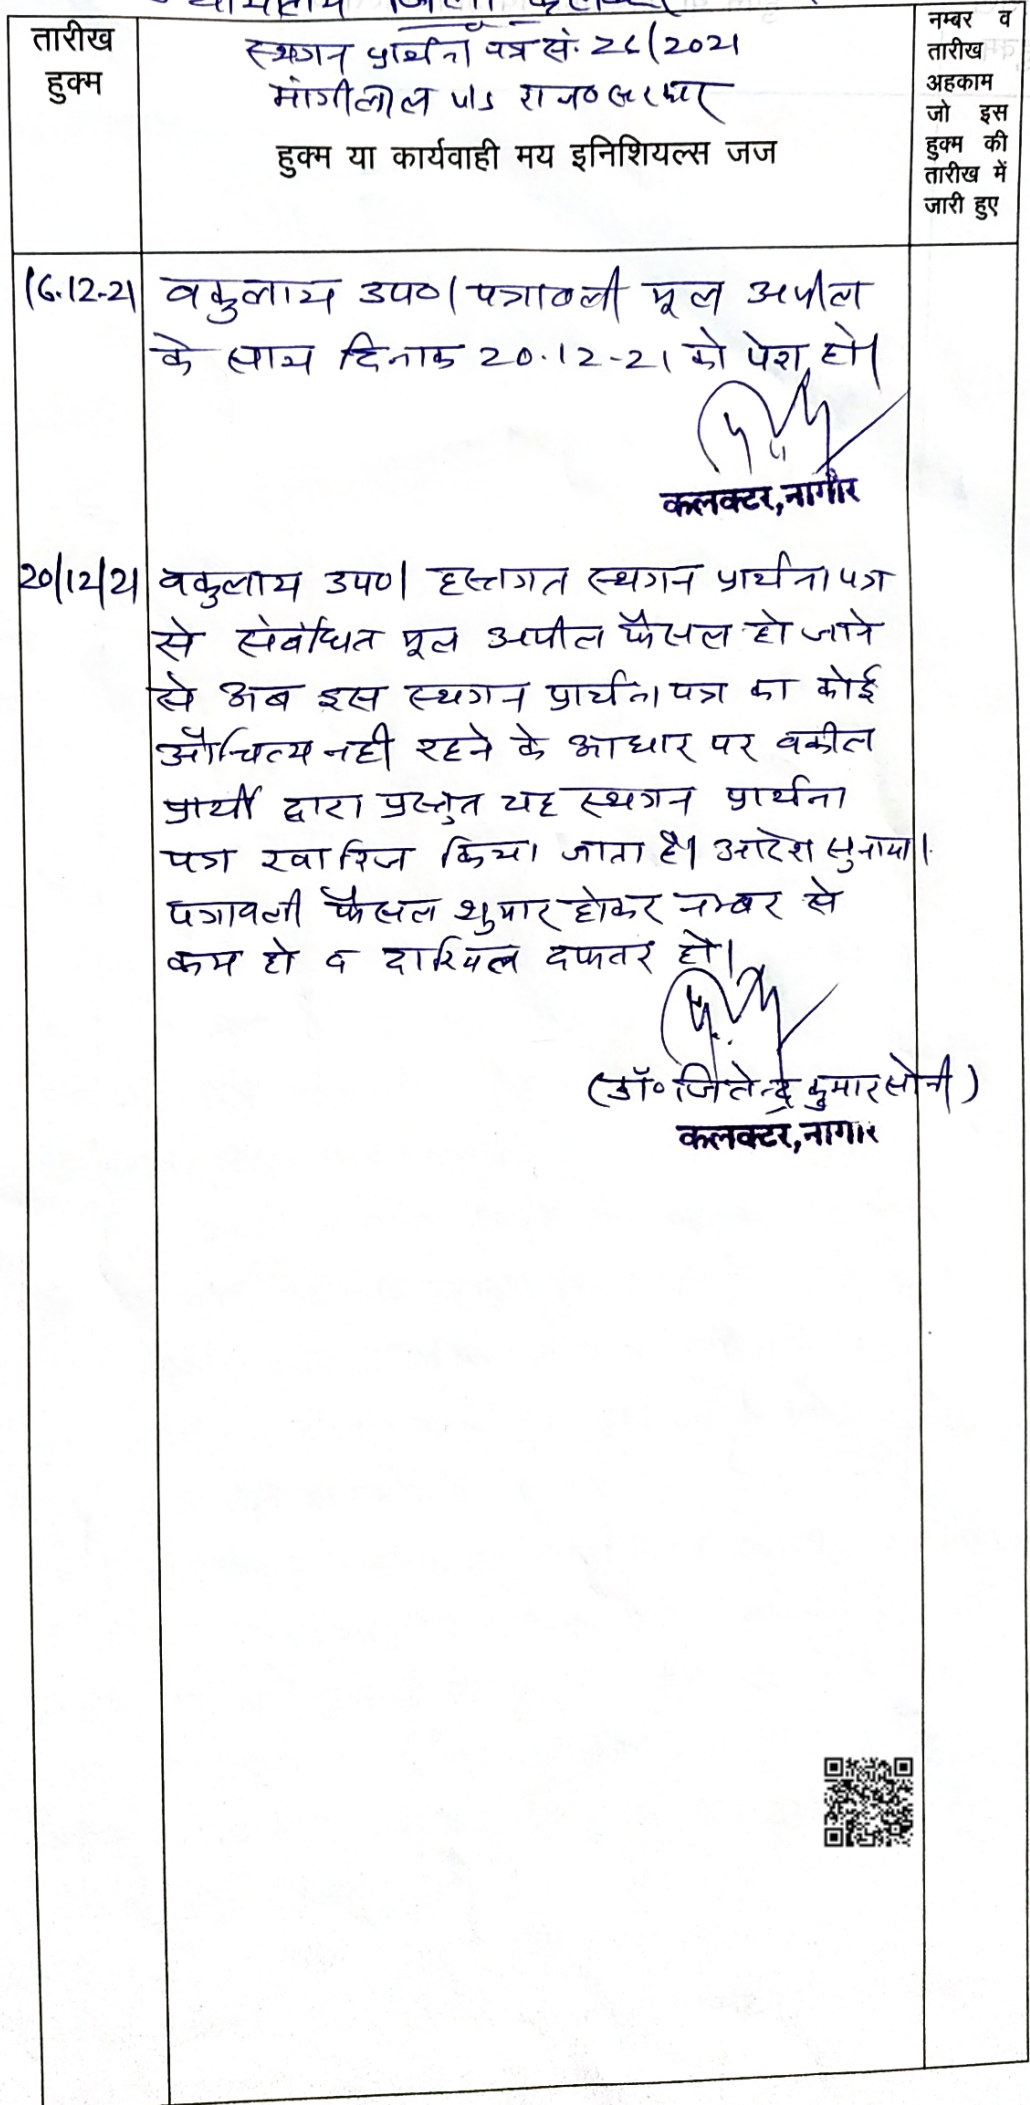 न्यायालय जिला कलक्टर
तारीख
हुक्म
स्थगन प्रार्थना पत्र सं. 26/2021
मांगीलाल v/s राज० सरकार
हुक्म या कार्यवाही मय इनिशियल्स जज
नम्बर व
तारीख
अहकाम
जो इस
हुक्म की
तारीख में
जारी हुए
16.12-21 वकुलाय उप०। पत्रावली मूल अपील
के साथ दिनाक 20.12-21 को पेश हो।
कलक्टर,नागौर
20/12/21 वकुलाय उप०। हस्तगत स्थगन प्रार्थना पत्र
से संबंधित मूल अपील फैसल हो जाने
से अब इस स्थगन प्रार्थना पत्र का कोई
औचित्य नही रहने के आधार पर वकील
प्रार्थी द्वारा प्रस्तुत यह स्थगन प्रार्थना
पत्र खारिज किया जाता है। आदेश सुनाया।
पत्रावली फैसल शुमार होकर नम्बर से
कम हो व दाखिल दफ्तर हो।
(डॉ० जितेन्द्र कुमार सोनी)
कलक्टर,नागौर